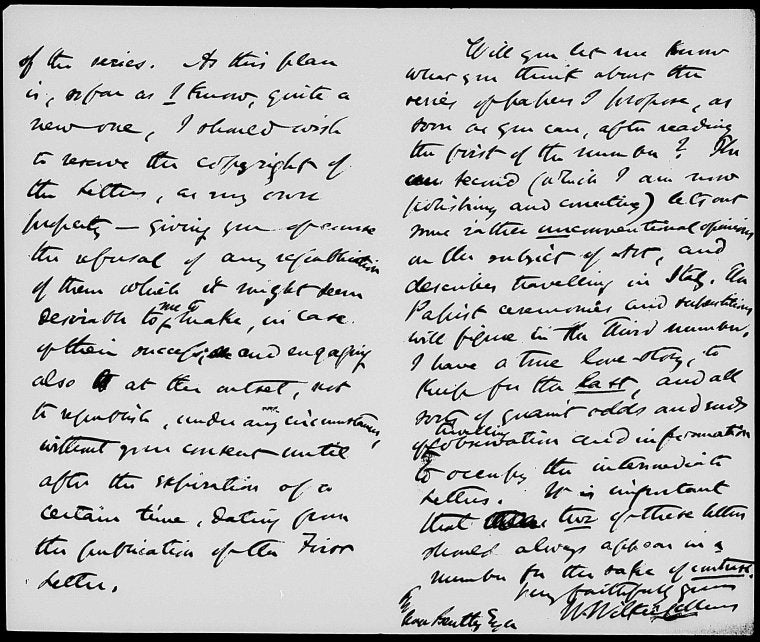 of the series. As this plan
is, so far as I know, quite a
new one, I should wish
to reserve the copyright of
the Letters, as my own
property – giving you of course
the refusal of any republication
of them which it might seem
desirable to me to make, in case
of their success, and engaging
also at the outset, not
to republish, under any circumstances,
without your consent until
after the expiration of a
certain time, dating from
the publication of the First
Letter.
Will you let me know
what you think about the
series of papers I propose, as
soon as you can, after reading
the first of the number? The
second (which I am now
polishing and correcting) lets out
some rather unconventional opinions
on the subject of Art, and
describes travelling in Italy. The
Papist ceremonies and superstitions
will figure in the third number.
I have a true love-story, to
keep for the last, and all
sorts of quaint odds and ends
of travelling observation and information
to occupy the intermediate
Letters. It is important
that two of these letters
should always appear in a
number for the sake of contrast.
Very faithfully yours
W Wilkie Collins
Bentley Esqre